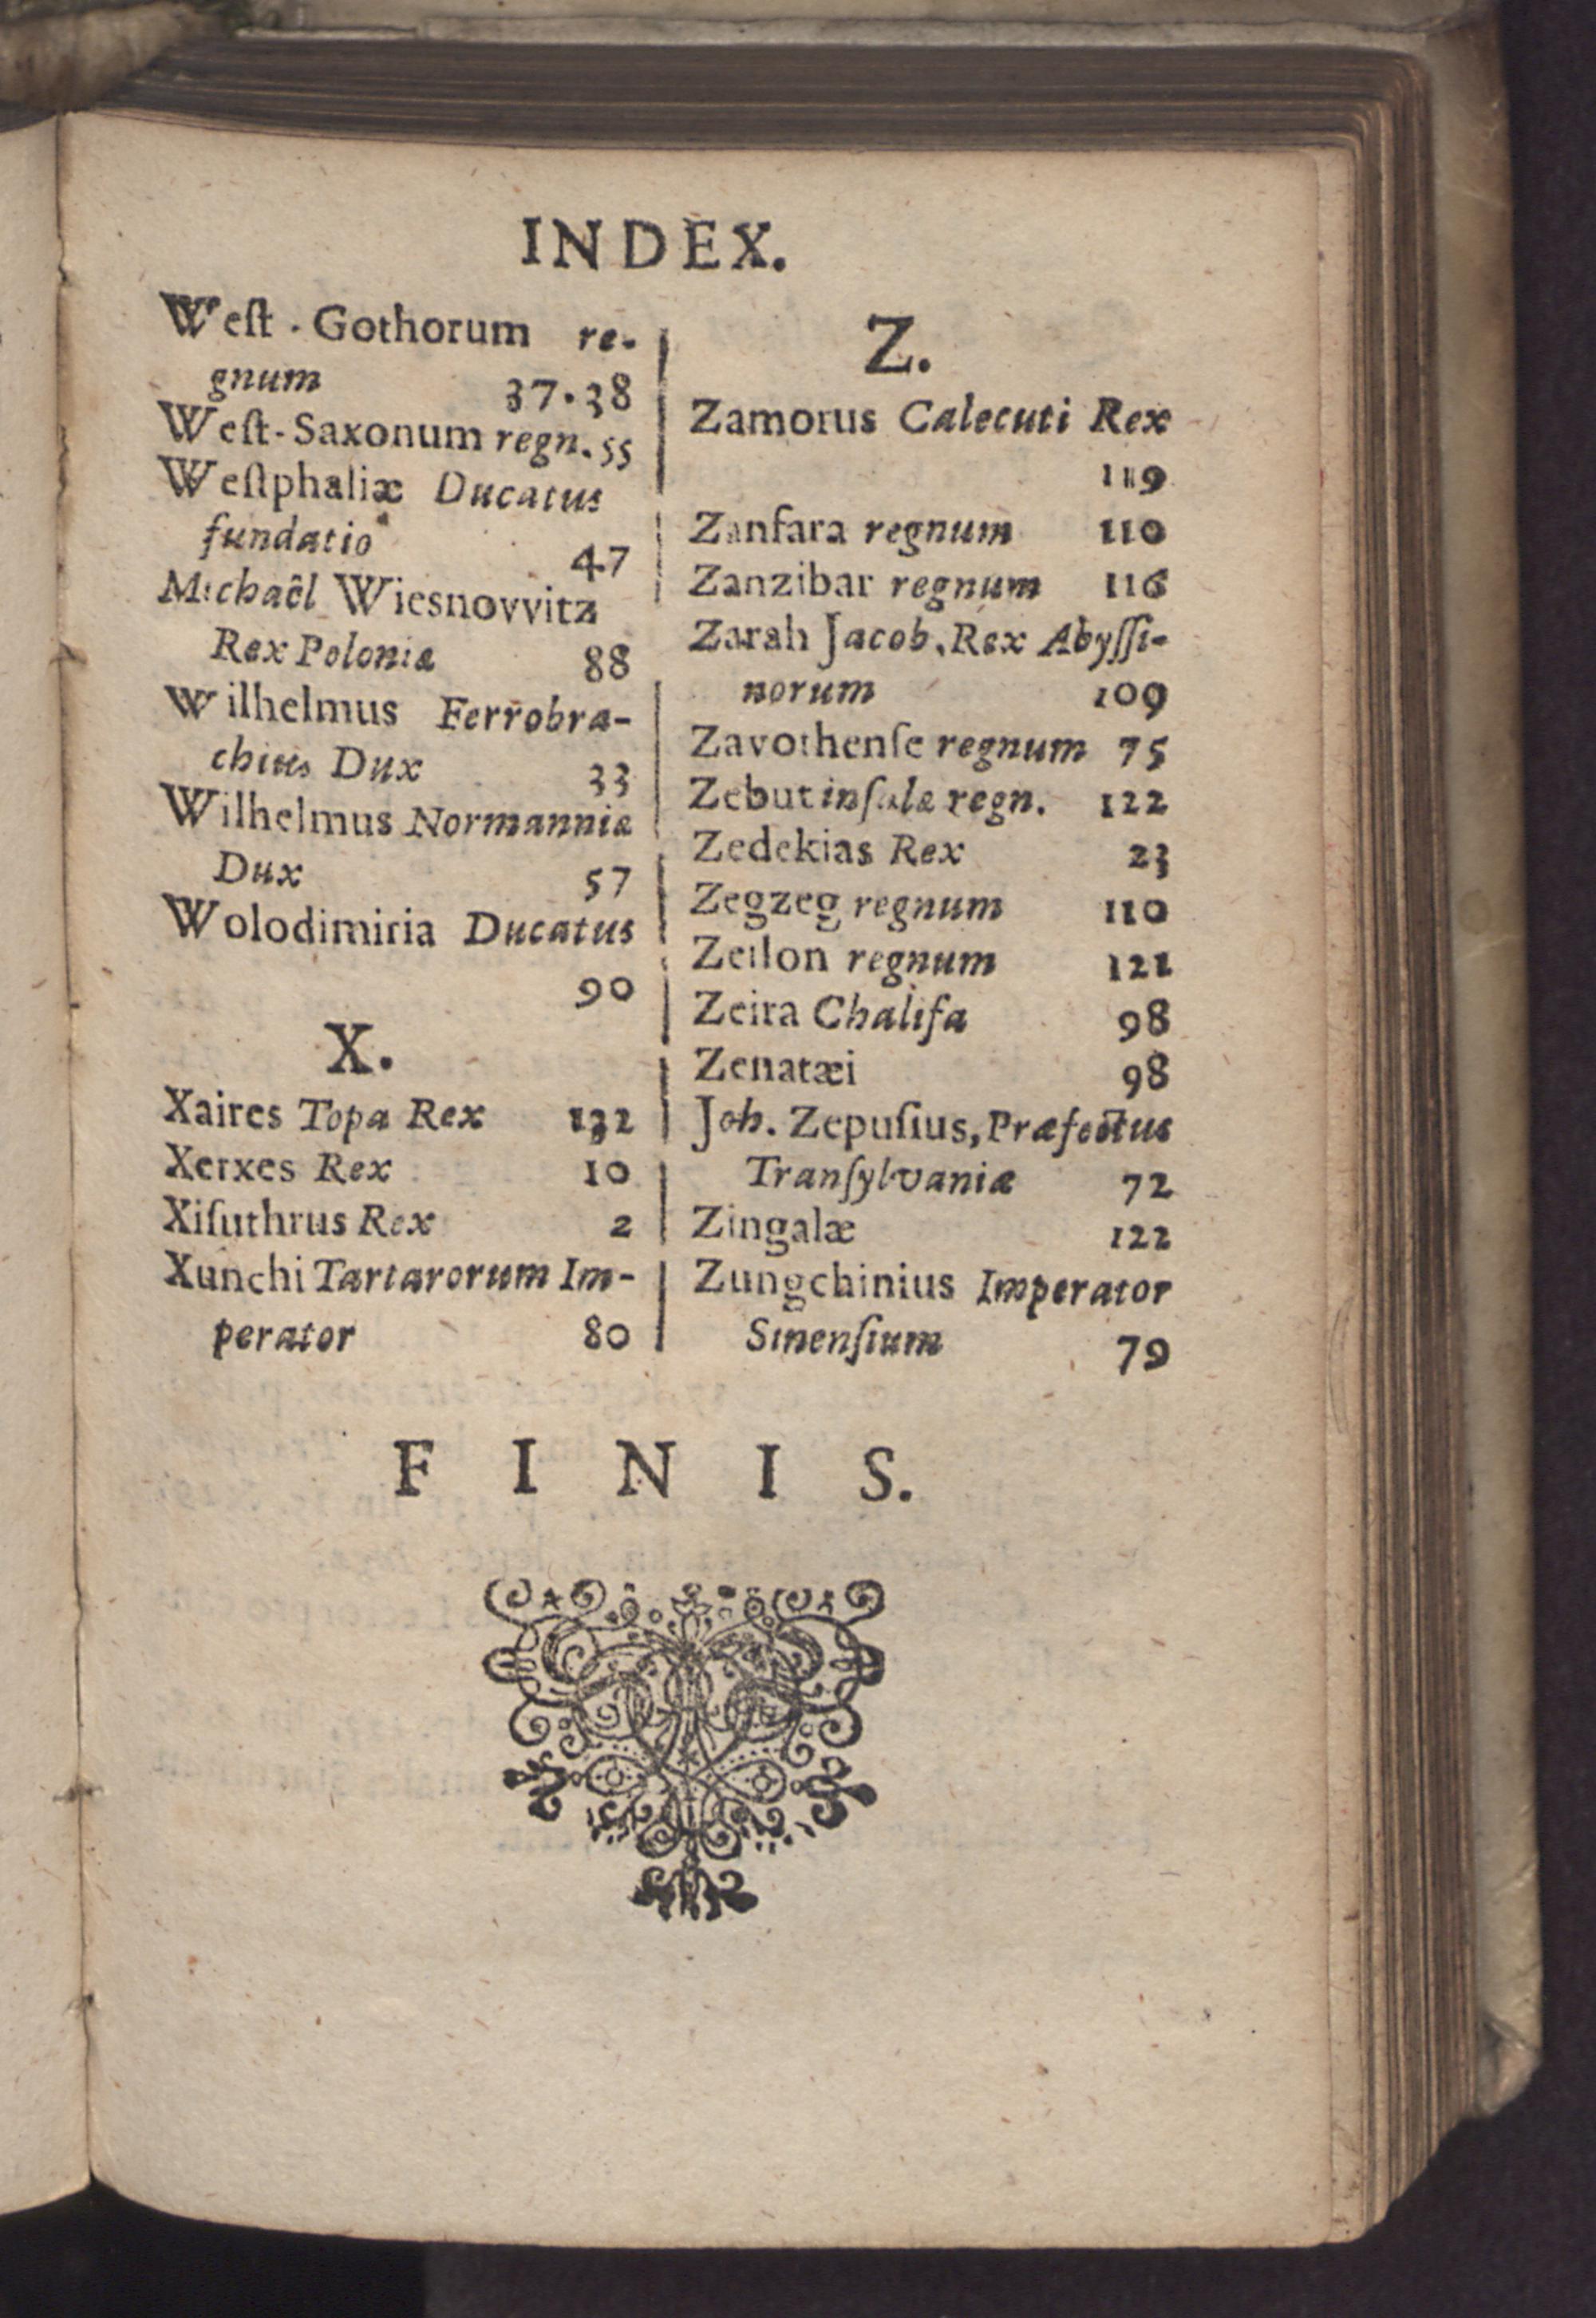 INDEX.
Weſt-Gothorum re-
gnum 37.38
Weſt-Saxonum regn. 55
Weſtphaliæ Ducatus
fundatio 47
Michaêl Wiesnovvitz
Rex Poloniæ 88
Wilhelmus Ferrobra-
chius Dux 33
Wilhelmus Normanniæ
Dux 57
Wolodimiria Ducatus
90
X.
Xaires Topa Rex 132
Xerxes Rex 10
Xiſuthrus Rex 2
Xunchi Tartarorum Im-
perator 80
Z.
Zamorus Calecuti Rex
119
Zanfara regnum 110
Zanzibar regnum 116
Zarah Jacob, Rex Abyſſi-
norum 109
Zavothenſe regnum 75
Zebut inſulæ regn. 122
Zedekias Rex 23
Zegzeg regnum 110
Zeilon regnum 121
Zeira Chalifa 98
Zenatæi 98
Joh. Zepuſius, Præfectus
Tranſylvaniæ 72
Zingalæ 122
Zungchinius Imperator
Sinenſium 79
FINIS.